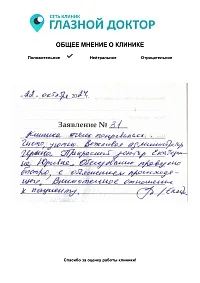 СЕТЬ КЛИНИК
ГЛАЗНОЙ ДОКТОР
ОБЩЕЕ МНЕНИЕ О КЛИНИКЕ
Положительное Нейтральное Отрицательное
22 октября 2024
Заявление № 31
Клиника очень понравилась.
Чисто, уютно. Вежливый администратор
Ирина. Прекрасный доктор Екатери-
на Юрьевна. Обследование проведено
быстро, с объяснением происходя-
щего, Внимательное отношение
к пациенту.
Спасибо за оценку работы клиники!